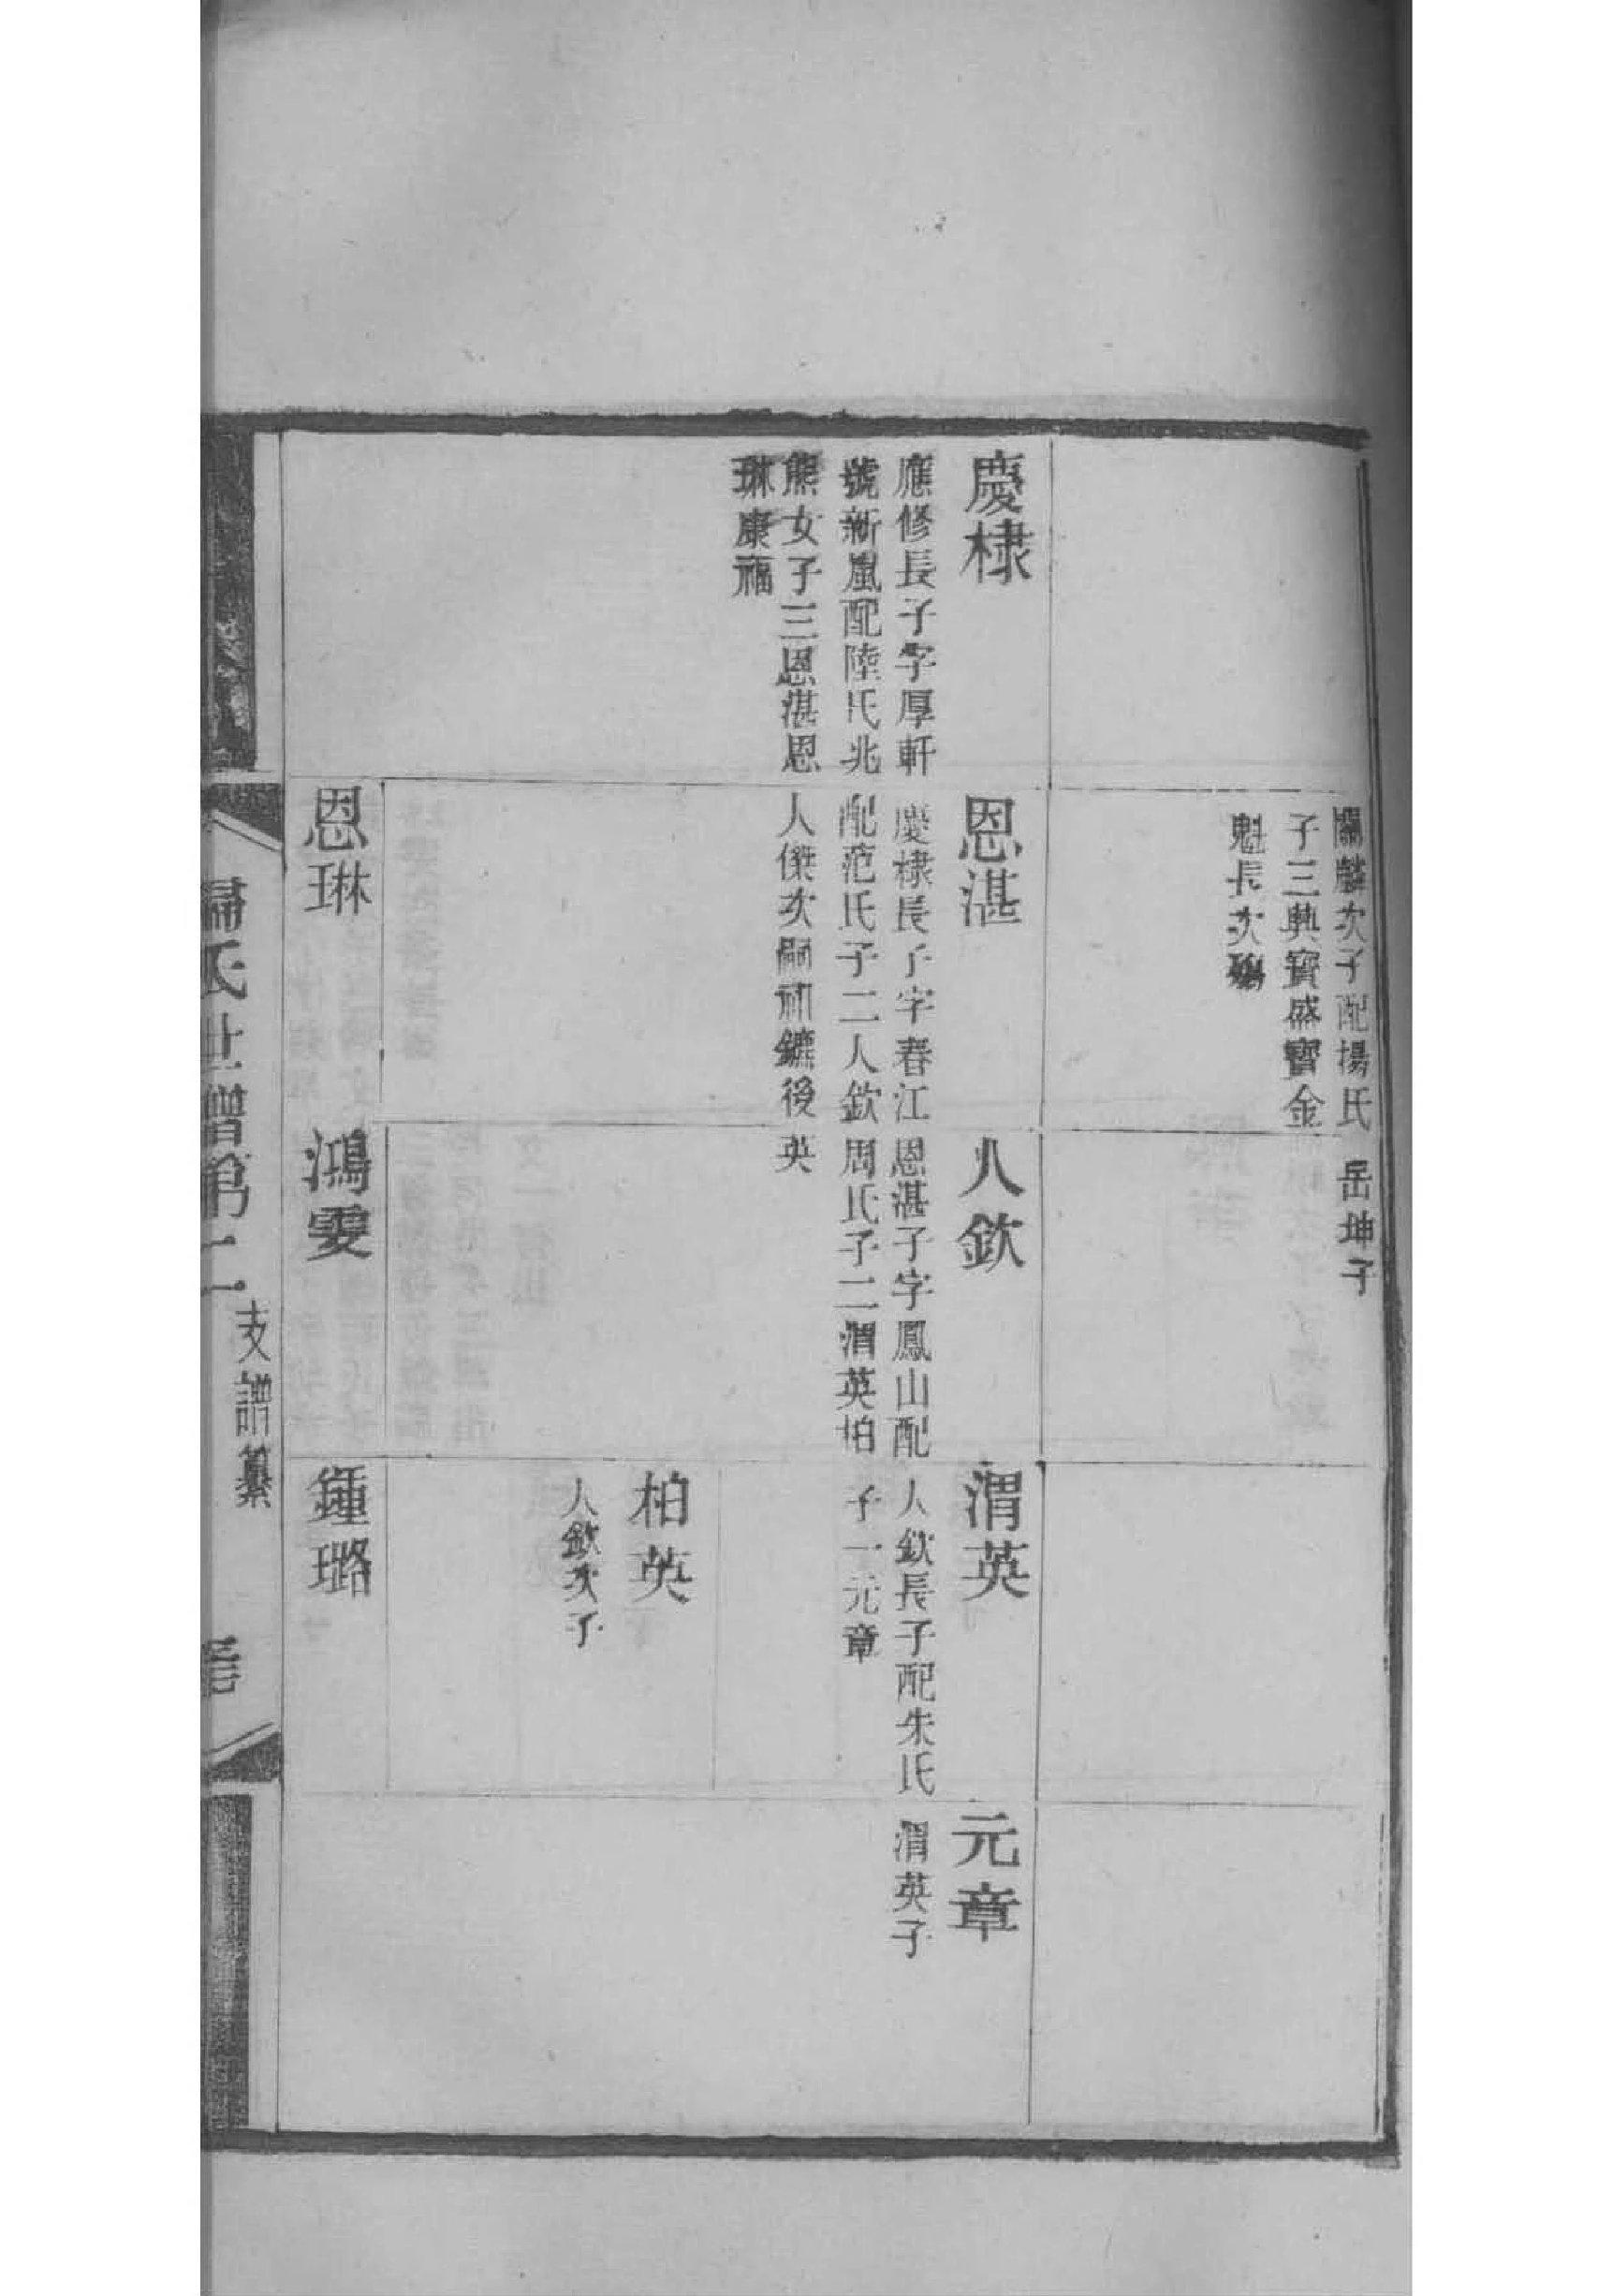 麟次子配揚氏
子三興寶盛寶金
魁長次殤
岳坤子
慶棣
應修長子字厚軒
號新嵐配陸氏兆
熊女子三恩湛恩
琳康福
恩湛
慶棣長子字春江
配范氏子二人欽
人傑次嗣鑣後
人欽
恩湛子字鳳山配
周氏子二渭英柏
英
渭英
人欽長子配朱氏
子一元章
元章
渭英子
柏英
人欽次子
恩琳
鴻雯
鍾璐
氏世譜第二
支譜纂